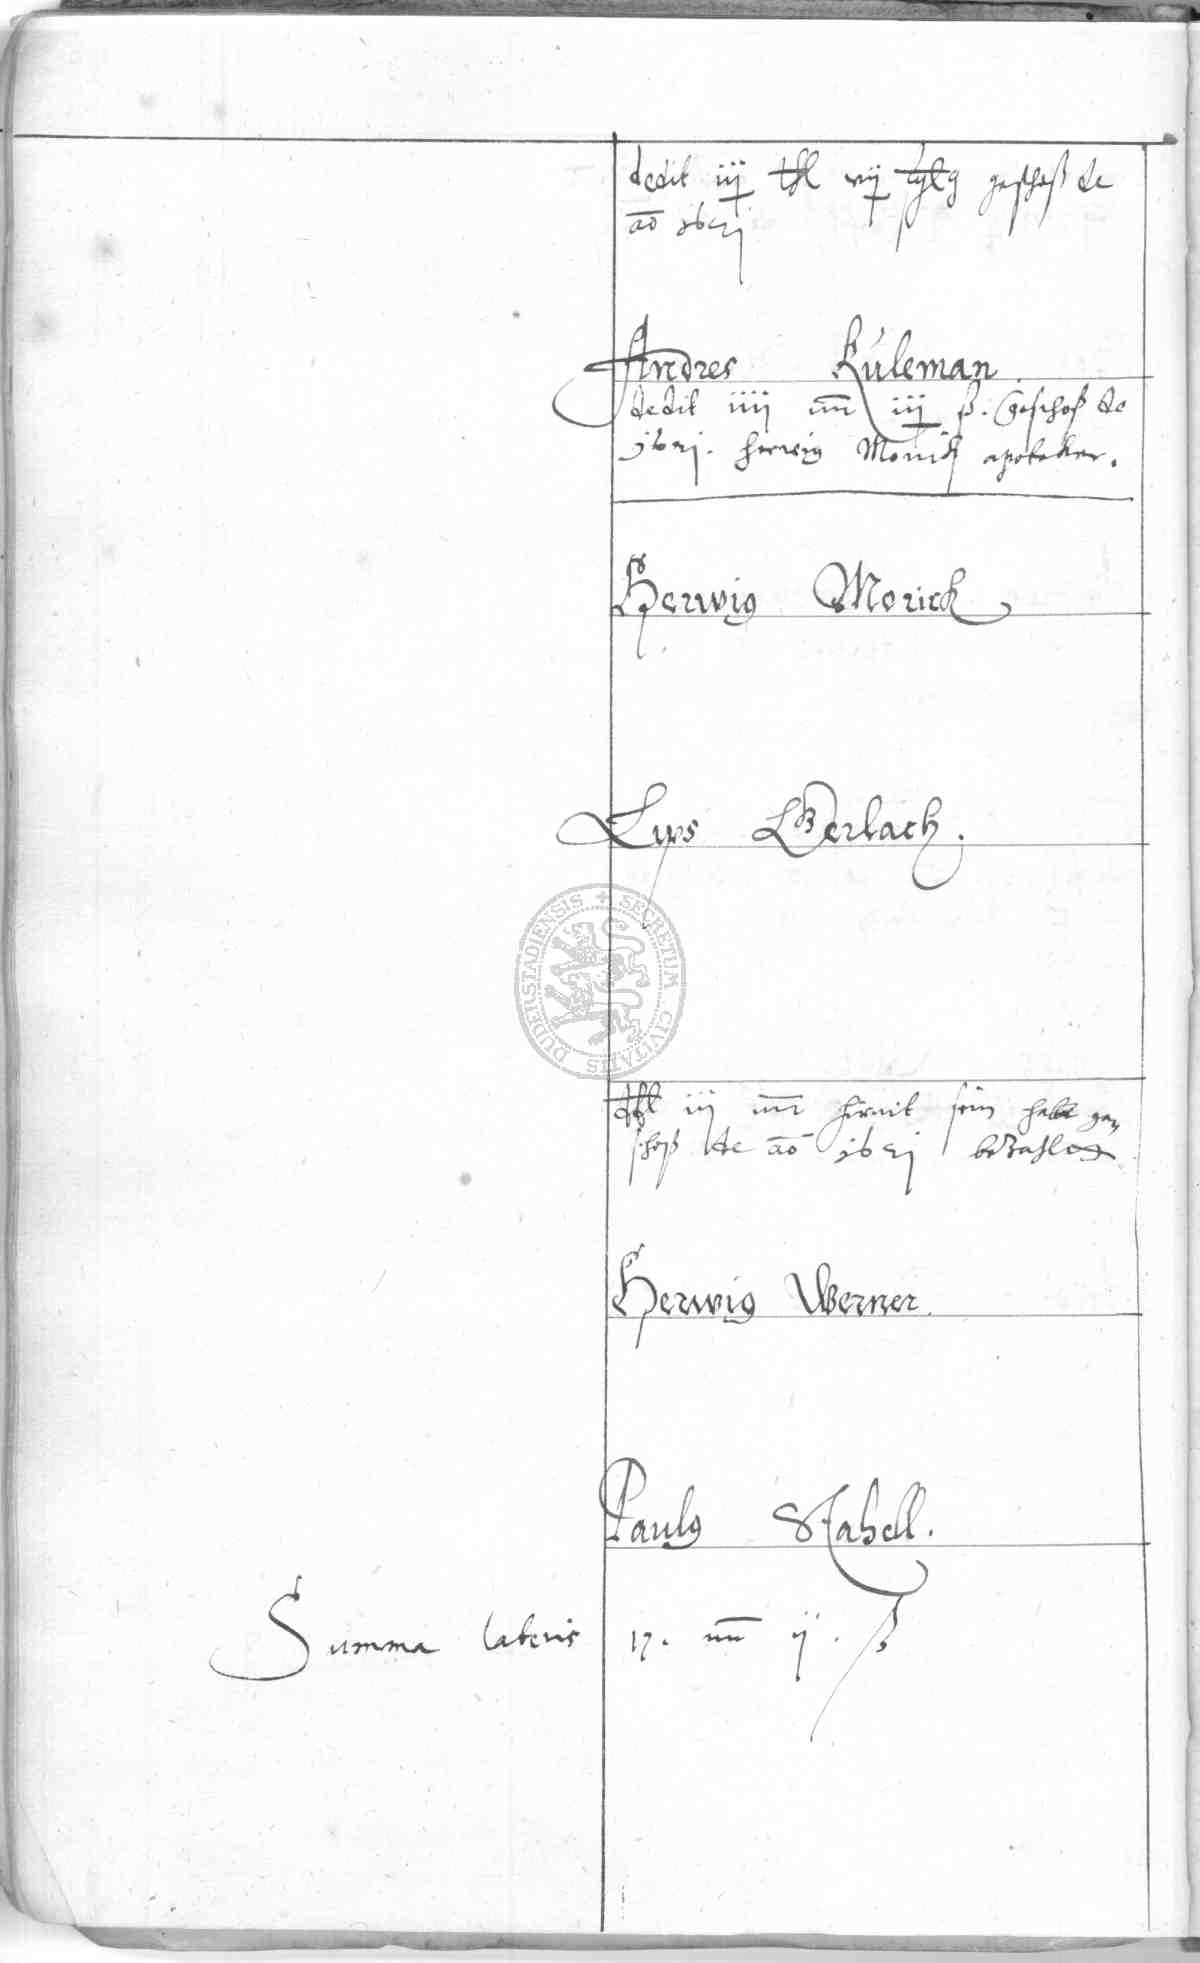 dedit iij thl vij schſlg geschoß de
ao 1621
Andres Kuleman
dedit iiij mr iij ß. Geschoß de
1621. herwig Morick apoteker.
Herwig Morick
Lips Gerlach.
DUDERSTADIENSIS SECRETUM CIVITATIS
thl iij mr hirmit sein halb ge
schoß de ao 1621 bezahlet
Herwig Werner
Paulg Stahell.
Summa lateris 17. mr ij. ß